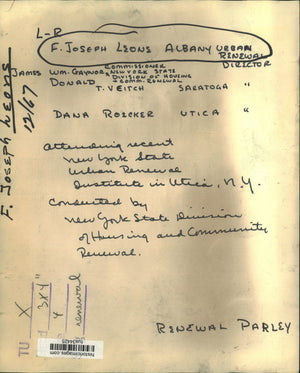 L-R
F. JOSEPH LEONS ALBANY URBAN
RENEWAL
DIRECTOR
COMMISSIONER
JAMES WM. GAYNOR, NEW YORK STATE
DIVISION OF HOUSING
+ COMM. RENEWAL
DONALD T. VEITCH SARATOGA "
DANA ROECKER UTICA "
attending recent
New York State
Urban Renewal
Institute in Utica, N.Y.
conducted by
New York State Division
of Housing and Community
Renewal.
RENEWAL PARLEY
F. JOSEPH LEONS
12/67
TU X
3x4"
4
renewal
historicimages.com